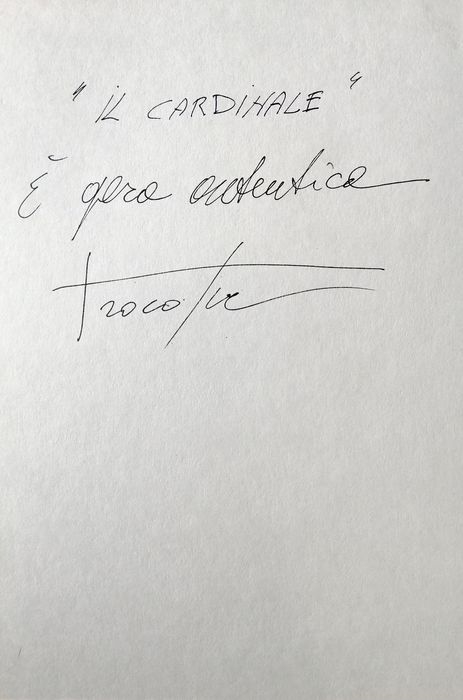 "IL CARDINALE"
È opera autentica